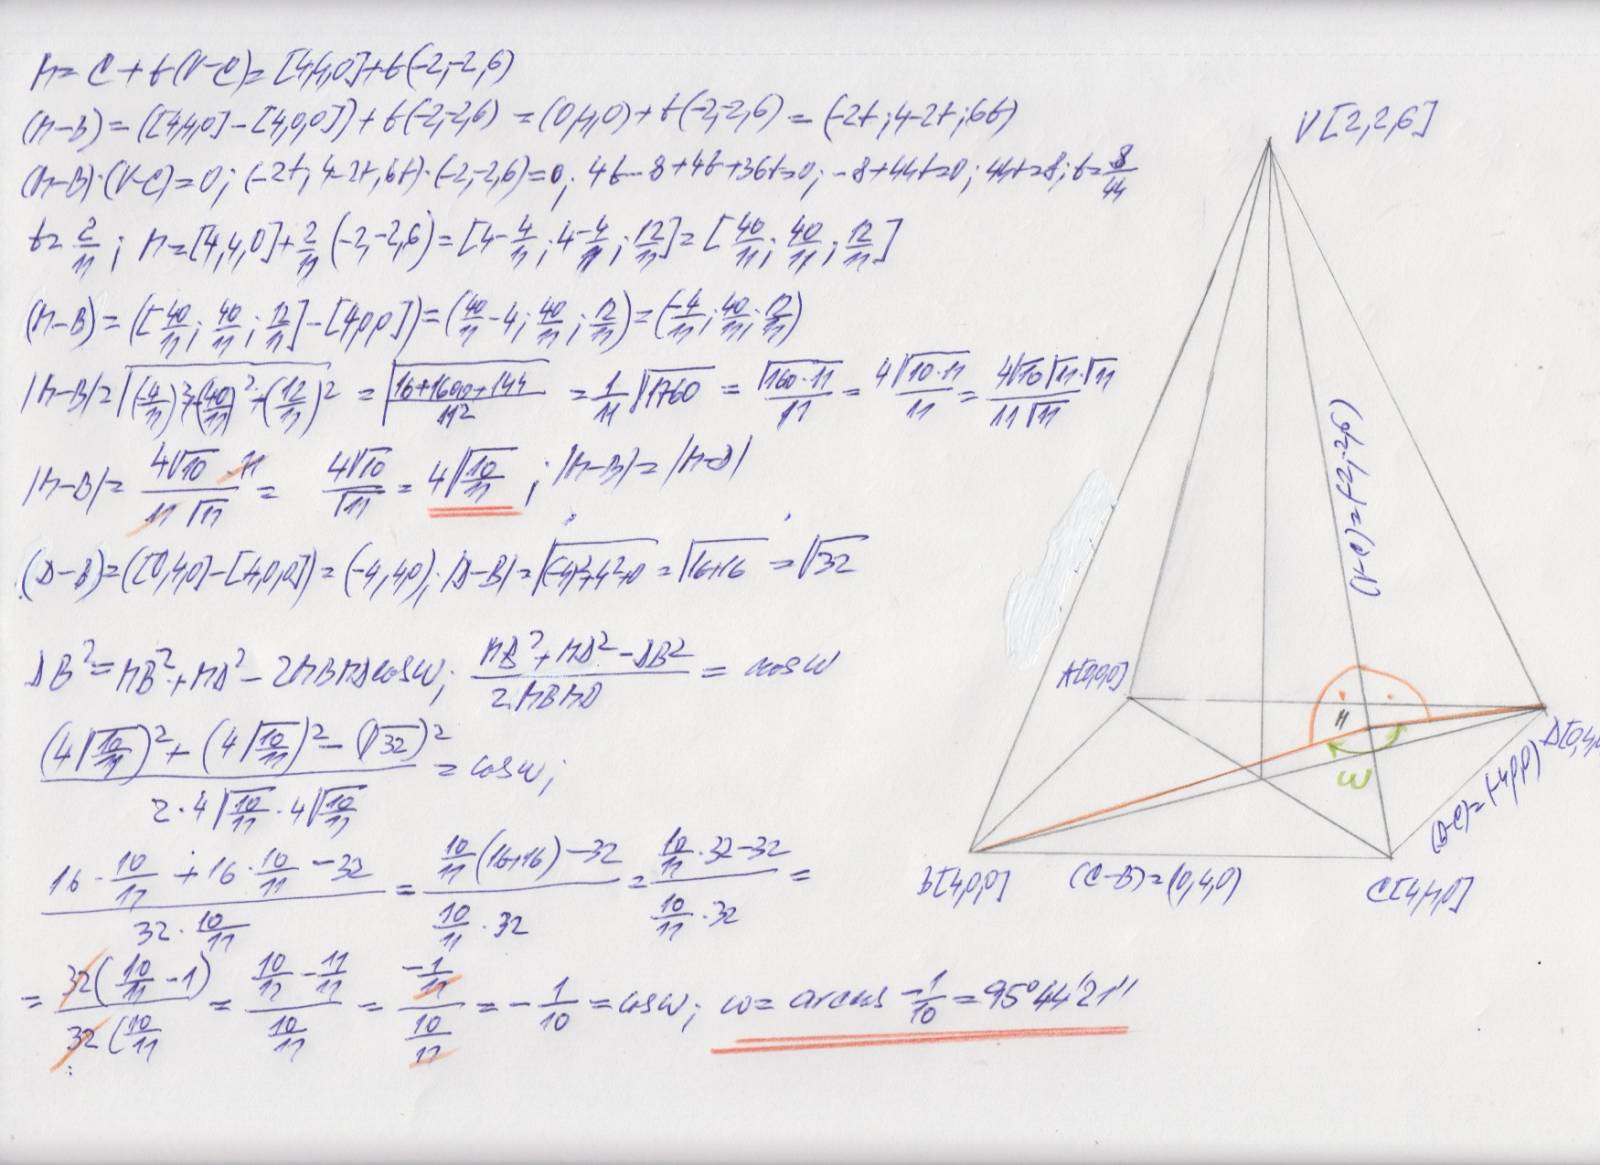 M = C + t(V-C) = [4,4,0] + t(-2,-2,6)
(M-B) = ([4,4,0] - [4,0,0]) + t(-2,-2,6) = (0,4,0) + t(-2,-2,6) = (-2t; 4-2t; 6t)
(M-B)·(V-C) = 0; (-2t, 4-2t, 6t)·(-2,-2,6) = 0; 4t - 8 + 4t + 36t = 0; -8 + 44t = 0; 44t = 8; t = 8/44
t = 2/11; M = [4,4,0] + 2/11 (-2,-2,6) = [4 - 4/11; 4 - 4/11; 12/11] = [40/11; 40/11; 12/11]
(M-B) = ([40/11; 40/11; 12/11] - [4,0,0]) = (40/11 - 4; 40/11; 12/11) = (-4/11; 40/11; 12/11)
|M-B| = √((-4/11)² + (40/11)² + (12/11)²) = √((16+1600+144)/11²) = 1/11 √1760 = √(160·11)/11 = 4√(10·11)/11 = 4√10 √11·√11/(11√11)
|M-B| = 4√10·11/(11√11) = 4√10/√11 = 4√(10/11); |M-B| = |M-D|
(D-B) = ([0,4,0] - [4,0,0]) = (-4,4,0); |D-B| = √((-4)²+4²+0) = √(16+16) = √32
DB² = MB² + MD² - 2MBMD cos ω; (MB² + MD² - DB²)/(2.MBMD) = cos ω
((4√(10/11))² + (4√(10/11))² - (√32)²)/(2·4√(10/11)·4√(10/11)) = cos ω;
(16·10/11 + 16·10/11 - 32)/(32·10/11) = (10/11(16+16) - 32)/(10/11·32) = (10/11·32-32)/(10/11·32) =
= 32(10/11 - 1)/(32(10/11) = (10/11 - 11/11)/(10/11) = (-1/11)/(10/11) = -1/10 = cos ω; ω = arccos -1/10 = 95°44'21''
V[2,2,6]
(V-C) = (-2,-2,6)
A[0,0,0]
M
ω
D[0,4,
(D-C) = (-4,0,0)
B[4,0,0]
(C-B) = (0,4,0)
C[4,4,0]